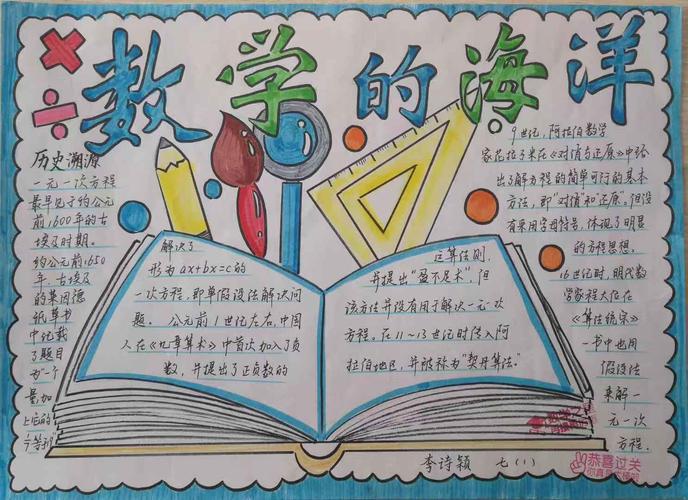 数学的海洋
历史溯源
一元一次方程
最早见于约公元
前1600年的古
埃及时期。
约公元前1650
年,古埃及
的莱因德
纸草书
中记载
了题目
为"一个
量,加
上它的
解决了
形为ax+bx=c的
一次方程,即单假设法解决问
题。公元前1世纪左右,中国
人在《九章算术》中首次加入了负
数,并提出了正负数的
运算法则,
并提出"盈不足术",但
该方法并没有用于解决一元一次
方程。在11~13世纪时传入阿
拉伯地区,并被称为"契丹算法"。
9世纪,阿拉伯数学
家花拉子米在《对消与还原》中给
出了解方程的简单可行的基本
方法,即"对消和还原"。但没
有采用字母符号,体现了明显
的方程思想。
16世纪时,明代数
学家程大位在
《算法统宗》
一书中也用
假设法
来解一
元一次
方程.
李诗颖 七(1)
恭喜过关